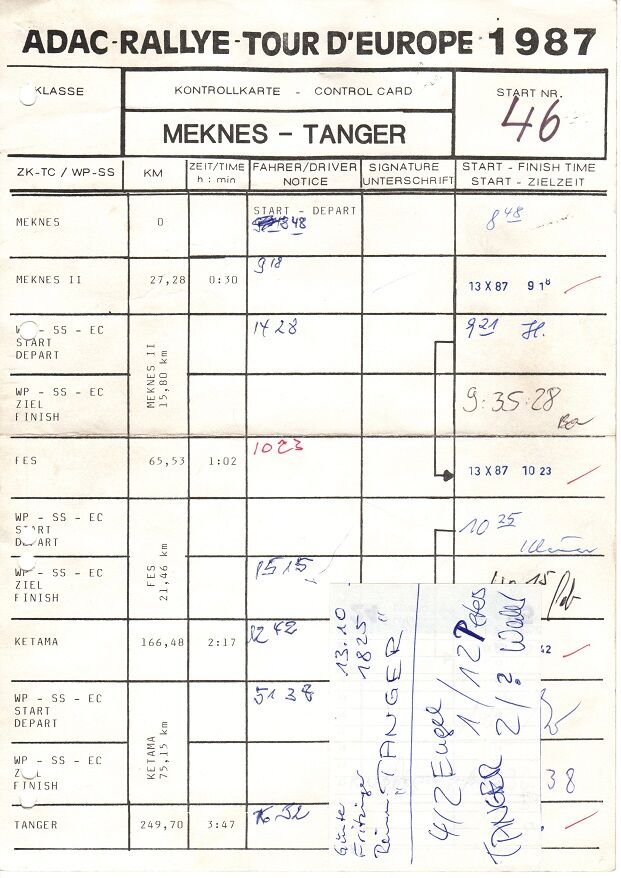 ADAC-RALLYE-TOUR D'EUROPE 1987
KLASSE
KONTROLLKARTE - CONTROL CARD
MEKNES - TANGER
START NR.
46
ZK-TC / WP-SS
KM
ZEIT/TIME
h : min
FAHRER/DRIVER
NOTICE
SIGNATURE
UNTERSCHRIFT
START - FINISH TIME
START - ZIELZEIT
MEKNES
0
START - DEPART
8 48
8 48
MEKNES II
27,28
0:30
9 18
13 X 87 9 18
WP - SS - EC
START
DEPART
MEKNES II
15,80 km
14 28
9 21
WP - SS - EC
ZIEL
FINISH
9:35:28
FES
65,53
1:02
10 23
13 X 87 10 23
WP - SS - EC
START
DEPART
FES
21,46 km
10 25
WP - SS - EC
ZIEL
FINISH
15 15
15
KETAMA
166,48
2:17
12 42
42
WP - SS - EC
START
DEPART
KETAMA
75,15 km
51 38
WP - SS - EC
ZIEL
FINISH
38
TANGER
249,70
3:47
16 32
13.10
1825
"TANGER"
4/2 Engel
1/12 Peters
TANGER 2/?